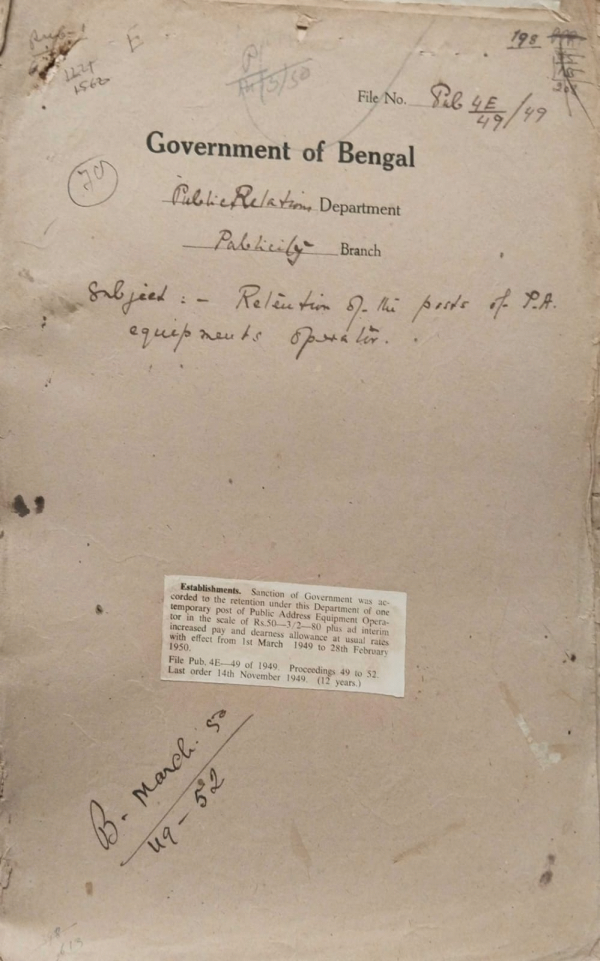 198
File No. Pub 4E/49/49
Government of Bengal
70
Public Relations Department
Publicity Branch
Subject :- Retention of the posts of P.A.
equipments operator.
Establishments. Sanction of Government was ac-
corded to the retention under this Department of one
temporary post of Public Address Equipment Opera-
tor in the scale of Rs.50—3/2—80 plus ad interim
increased pay and dearness allowance at usual rates
with effect from 1st March 1949 to 28th February
1950.
File Pub. 4E—49 of 1949. Proceedings 49 to 52.
Last order 14th November 1949. (12 years.)
B. March. 50
49 - 52